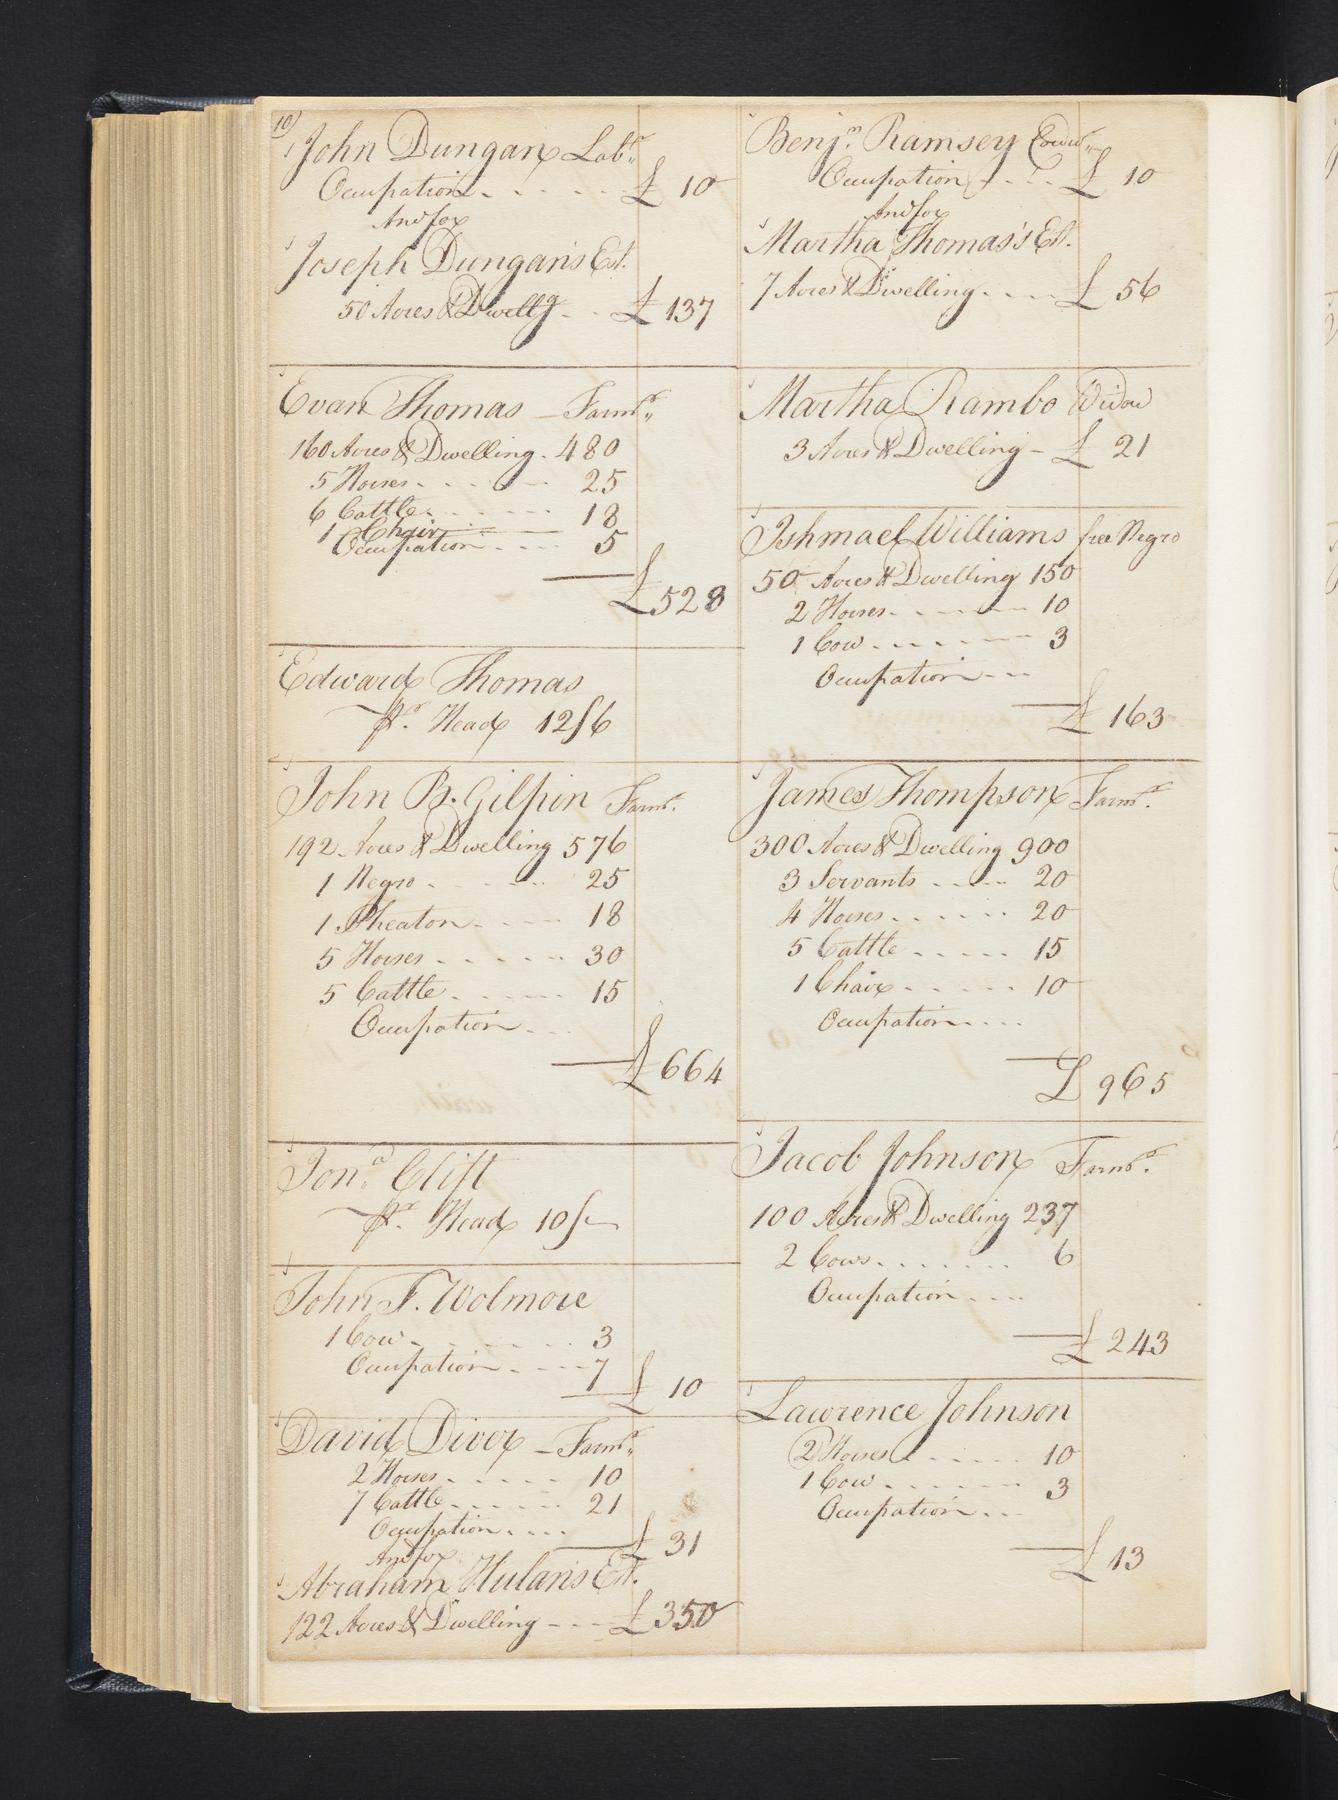 10)
John Dungan Labr.
Occupation . . . . . . £ 10
And for
Joseph Dungan's Est.
50 Acres & Dwellg . . £ 137
Evan Thomas — Farmr.
160 Acres & Dwelling . 480
5 Horses . . . . . . 25
6 Cattle . . . . . . 18
1 Chair
Occupation . . . . 5
£ 528
Edward Thomas
Pr. Head 12/6
John B. Gilpin Farmr.
192 Acres & Dwelling 576
1 Negro . . . . . 25
1 Pheaton . . . . . 18
5 Horses . . . . . . 30
5 Cattle . . . . . . 15
Occupation . . .
£ 664
Jona. Clift
Pr. Head 10/-
John F. Wolmore
1 Cow . . . . . . . 3
Occupation . . . . 7
£ 10
David Diver — Farmr.
2 Horses . . . . . 10
7 Cattle . . . . . . 21
Occupation . . . .
£ 31
And for
Abraham Hulan's Est.
122 Acres & Dwelling . . . £ 350
Benjn. Ramsey
Occupation . . . . £ 10
And for
Martha Thomas's Est.
7 Acres & Dwelling . . . . £ 56
Martha Rambo Widow
3 Acres & Dwelling — £ 21
Ishmael Williams free Negro
50 Acres & Dwelling 150
2 Horses . . . . . . 10
1 Cow . . . . . . 3
Occupation . . .
£ 163
James Thompson Farmr.
300 Acres & Dwelling 900
3 Servants . . . . . 20
4 Horses . . . . . . 20
5 Cattle . . . . . 15
1 Chair . . . . . . 10
Occupation . . . .
£ 965
Jacob Johnson Farmr.
100 Acres & Dwelling 237
2 Cows . . . . . . . 6
Occupation . . . .
£ 243
Lawrence Johnson
2 Horses . . . . . 10
1 Cow . . . . . . 3
Occupation . . .
£ 13